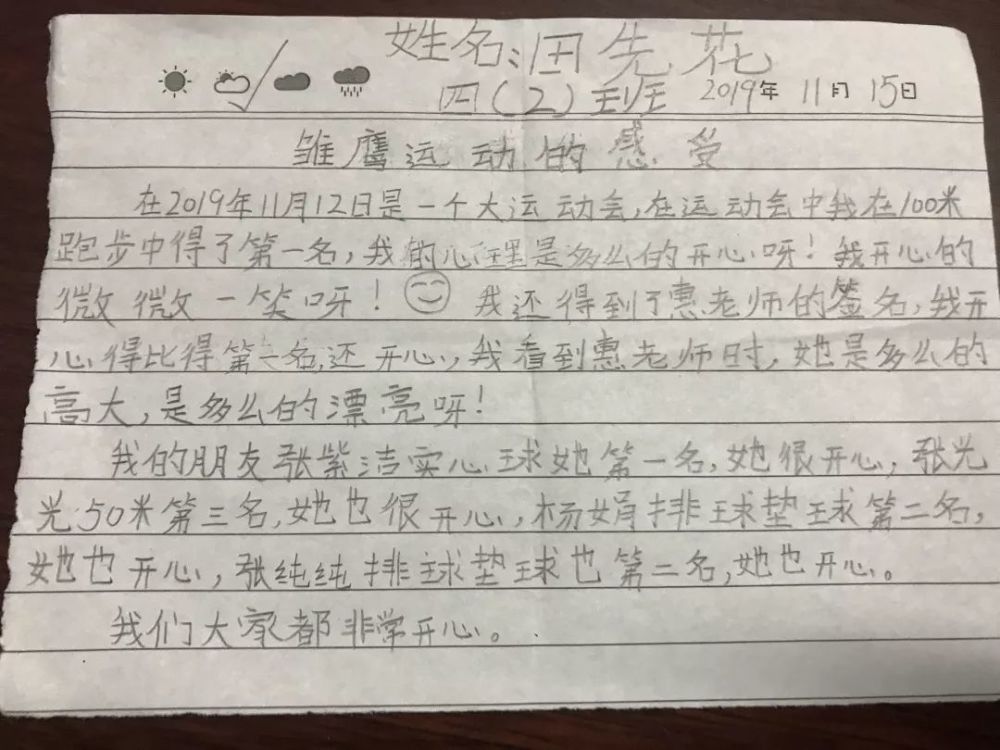 姓名:田先花
四(2)班 2019年 11月 15日
雏鹰运动的感受
在2019年11月12日是一个大运动会,在运动会中我在100米
跑步中得了第一名,我的心里是多么的开心呀!我开心的
微微一笑呀! 我还得到了惠老师的签名,我开
心得比得第一名还开心,我看到惠老师时,她是多么的
高大,是多么的漂亮呀!
我的朋友张紫洁实心球她第一名,她很开心,张光
光50米第三名,她也很开心,杨娟排球垫球第二名,
她也开心,张纯纯排球垫球也第二名,她也开心。
我们大家都非常开心。